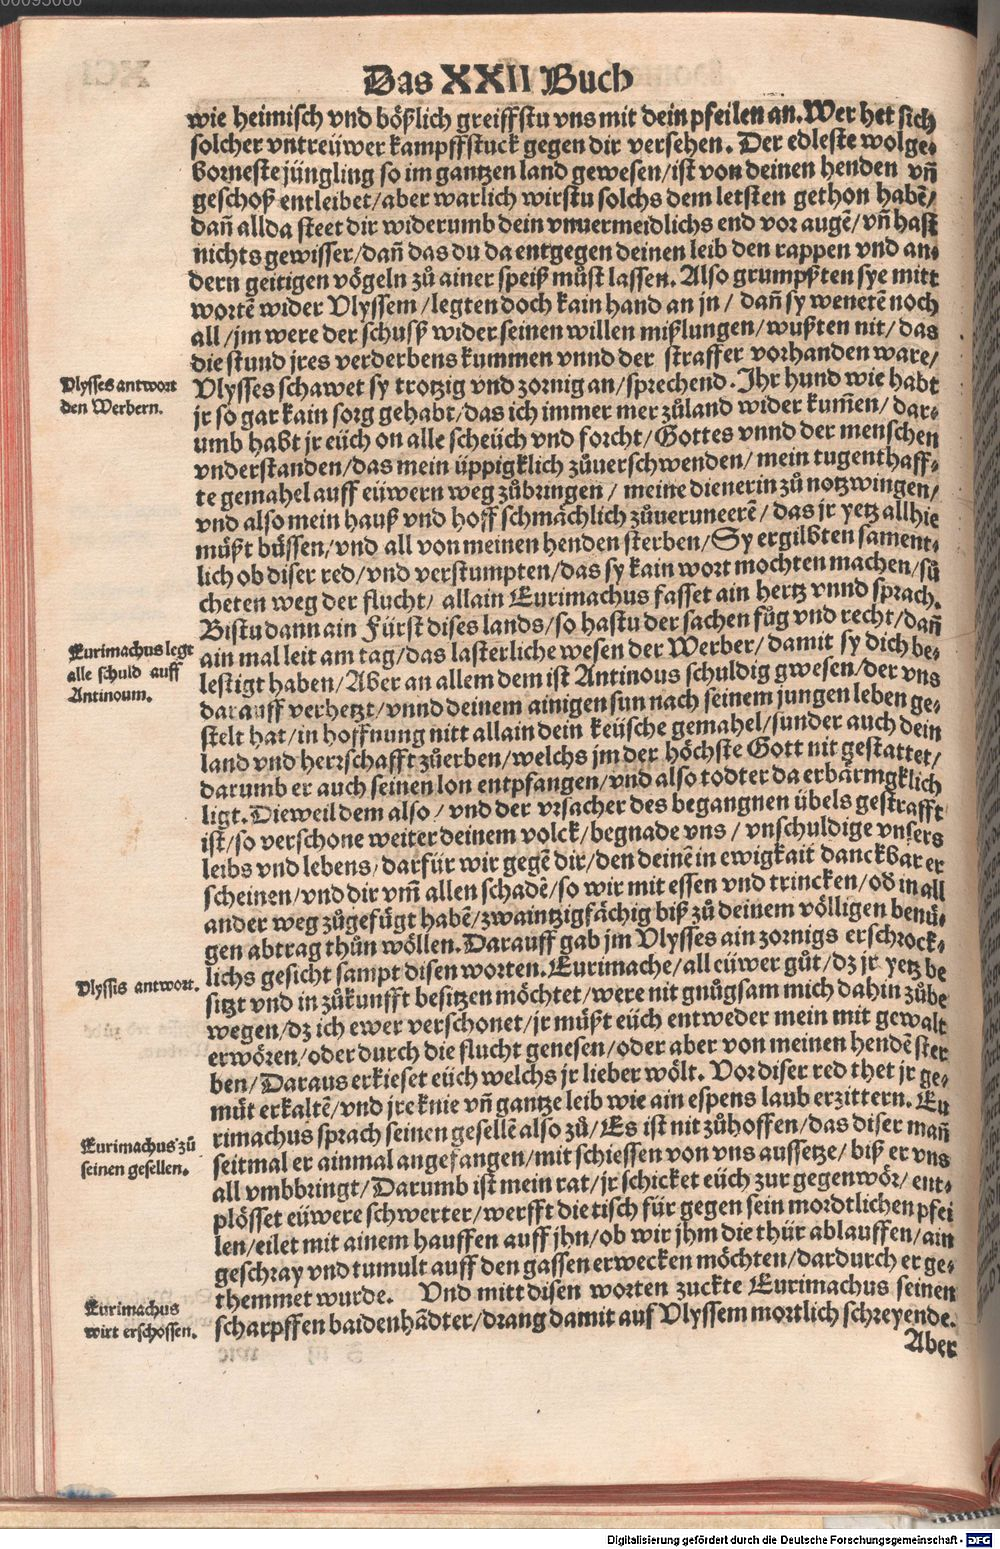 00095060
Das XXII Buch
wie heimisch vnd bößlich greiffstu vns mit dein pfeilen an. Wer het sich
solcher vntreüwer kampffstuck gegen dir versehen. Der edleste wolge⸗
borneste jüngling so im gantzen land gewesen/ist von deinen henden vñ
geschoß entleibet/aber warlich wirstu solchs dem letsten gethon habẽ/
dañ allda steet dir widerumb dein vnuermeidlichs end vor augẽ/vñ hast
nichts gewisser/dañ das du da entgegen deinen leib den rappen vnd an⸗
dern geitigen vögeln zů ainer speiß můst lassen. Also grumpßten sye mitt
wortẽ wider Vlyssem/legten doch kain hand an jn/ dañ sy wenetẽ noch
all/jm were der schusß wider seinen willen mißlungen/wußten nit/das
die stund jres verderbens kummen vnnd der straffer vorhanden ware/
Vlysses antwort
den Werbern.
Vlysses schawet sy trotzig vnd zornig an/sprechend. Ihr hund wie habt
jr so gar kain sorg gehabt/das ich immer mer zůland wider kum̃en/dar⸗
umb habt jr eüch on alle scheüch vnd forcht/Gottes vnnd der menschen
vnderstanden/das mein üppigklich zůuerschwenden/mein tugenthaff⸗
te gemahel auff eüwern weg zůbringen/ meine dienerin zů notzwingen/
vnd also mein hauß vnd hoff schmächlich zůueruneerẽ/das jr yetz allhie
müßt büssen/vnd all von meinen henden sterben/Sy ergilbten sament⸗
lich ob diser red/vnd verstumpten/das sy kain wort mochten machen/sů
cheten weg der flucht/ allain Eurimachus fasset ain hertz vnnd sprach.
Bistu dann ain Fürst dises lands/so hastu der sachen fůg vnd recht/dañ
Eurimachus legt
alle schuld auff
Antinoum.
ain mal leit am tag/das lasterliche wesen der Werber/damit sy dich be⸗
lestigt haben/Aber an allem dem ist Antinous schuldig gwesen/der vns
darauff verhetzt/vnnd deinem ainigen sun nach seinem jungen leben ge⸗
stelt hat/in hoffnung nitt allain dein keüsche gemahel/sunder auch dein
land vnd herrschafft zůerben/welchs jm der höchste Gott nit gestattet/
darumb er auch seinen lon entpfangen/vnd also todter da erbärmgklich
ligt. Dieweil dem also/vnd der vrsacher des begangnen übels gestrafft
ist/so verschone weiter deinem volck/begnade vns/vnschuldige vnsers
leibs vnd lebens/darfür wir gegẽ dir/den deinẽ in ewigkait danckbar er
scheinen/vnd dir vm̃ allen schadẽ/so wir mit essen vnd trincken/od in all
ander weg zůgefügt habẽ/zwaintzigfächig biß zů deinem völligen benů⸗
gen abtrag thůn wöllen. Darauff gab jm Vlysses ain zornigs erschrock⸗
Vlyssis antwort.
lichs gesicht sampt disen worten. Eurimache/all eüwer gůt/dz jr yetz be
sitzt vnd in zůkunfft besitzen möchtet/were nit gnůgsam mich dahin zůbe
wegen/dz ich ewer verschonet/jr müßt eüch entweder mein mit gewalt
erwören/oder durch die flucht genesen/oder aber von meinen hendẽ ster
ben/Daraus erkieset eüch welchs jr lieber wölt. Vor diser red thet jr ge⸗
müt erkaltẽ/vnd jre knie vñ gantze leib wie ain espens laub erzittern. Eu
Eurimachus zů
seinen gesellen.
rimachus sprach seinen gesellẽ also zů/Es ist nit zůhoffen/das diser mañ
seitmal er ainmal angefangen/mit schiessen von vns aussetze/biß er vns
all vmbbringt/Darumb ist mein rat/jr schicket eüch zur gegenwör/ent⸗
plösset eüwere schwerter/werfft die tisch für gegen sein mordtlichen pfei
len/eilet mit ainem hauffen auff jhn/ob wir jhm die thür ablauffen/ain
geschray vnd tumult auff den gassen erwecken möchten/dardurch er ge⸗
Eurimachus
wirt erschossen.
themmet wurde. Vnd mitt disen worten zuckte Eurimachus seinen
scharpffen baidenhãdter/drang damit auf Vlyssem mortlich schreyende.
Aber
Digitalisierung gefördert durch die Deutsche Forschungsgemeinschaft - DFG